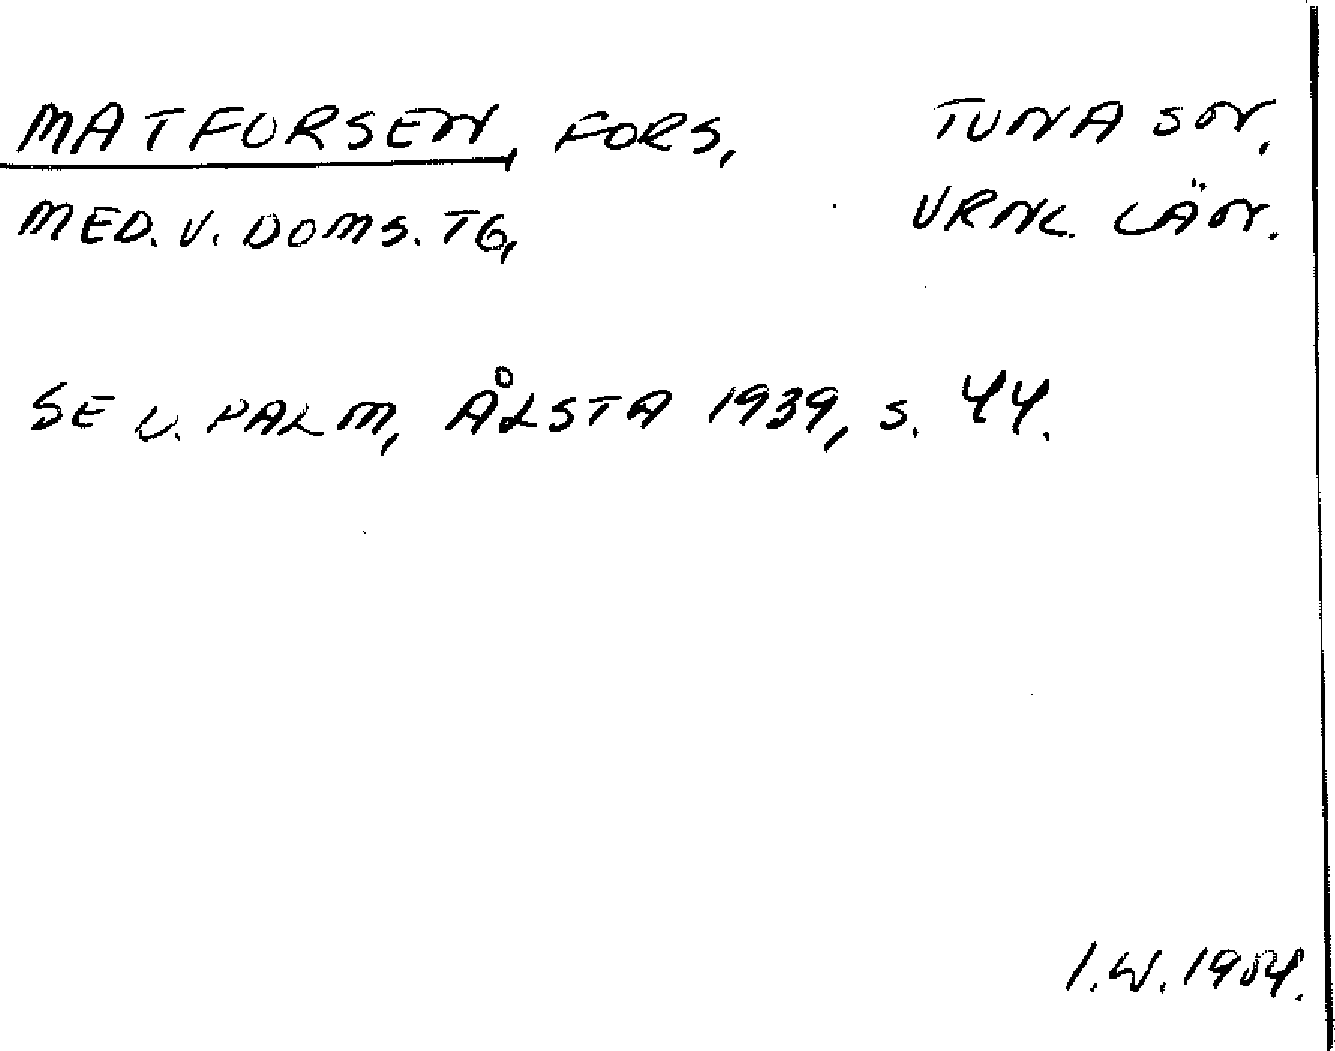 MATFORSEN, FORS, TUNA SN,
MED. V. DOMS. TG, VRNL. LÄN.
SE V. PALM, ÅLSTA 1939, S. 44.
I.W. 1954.